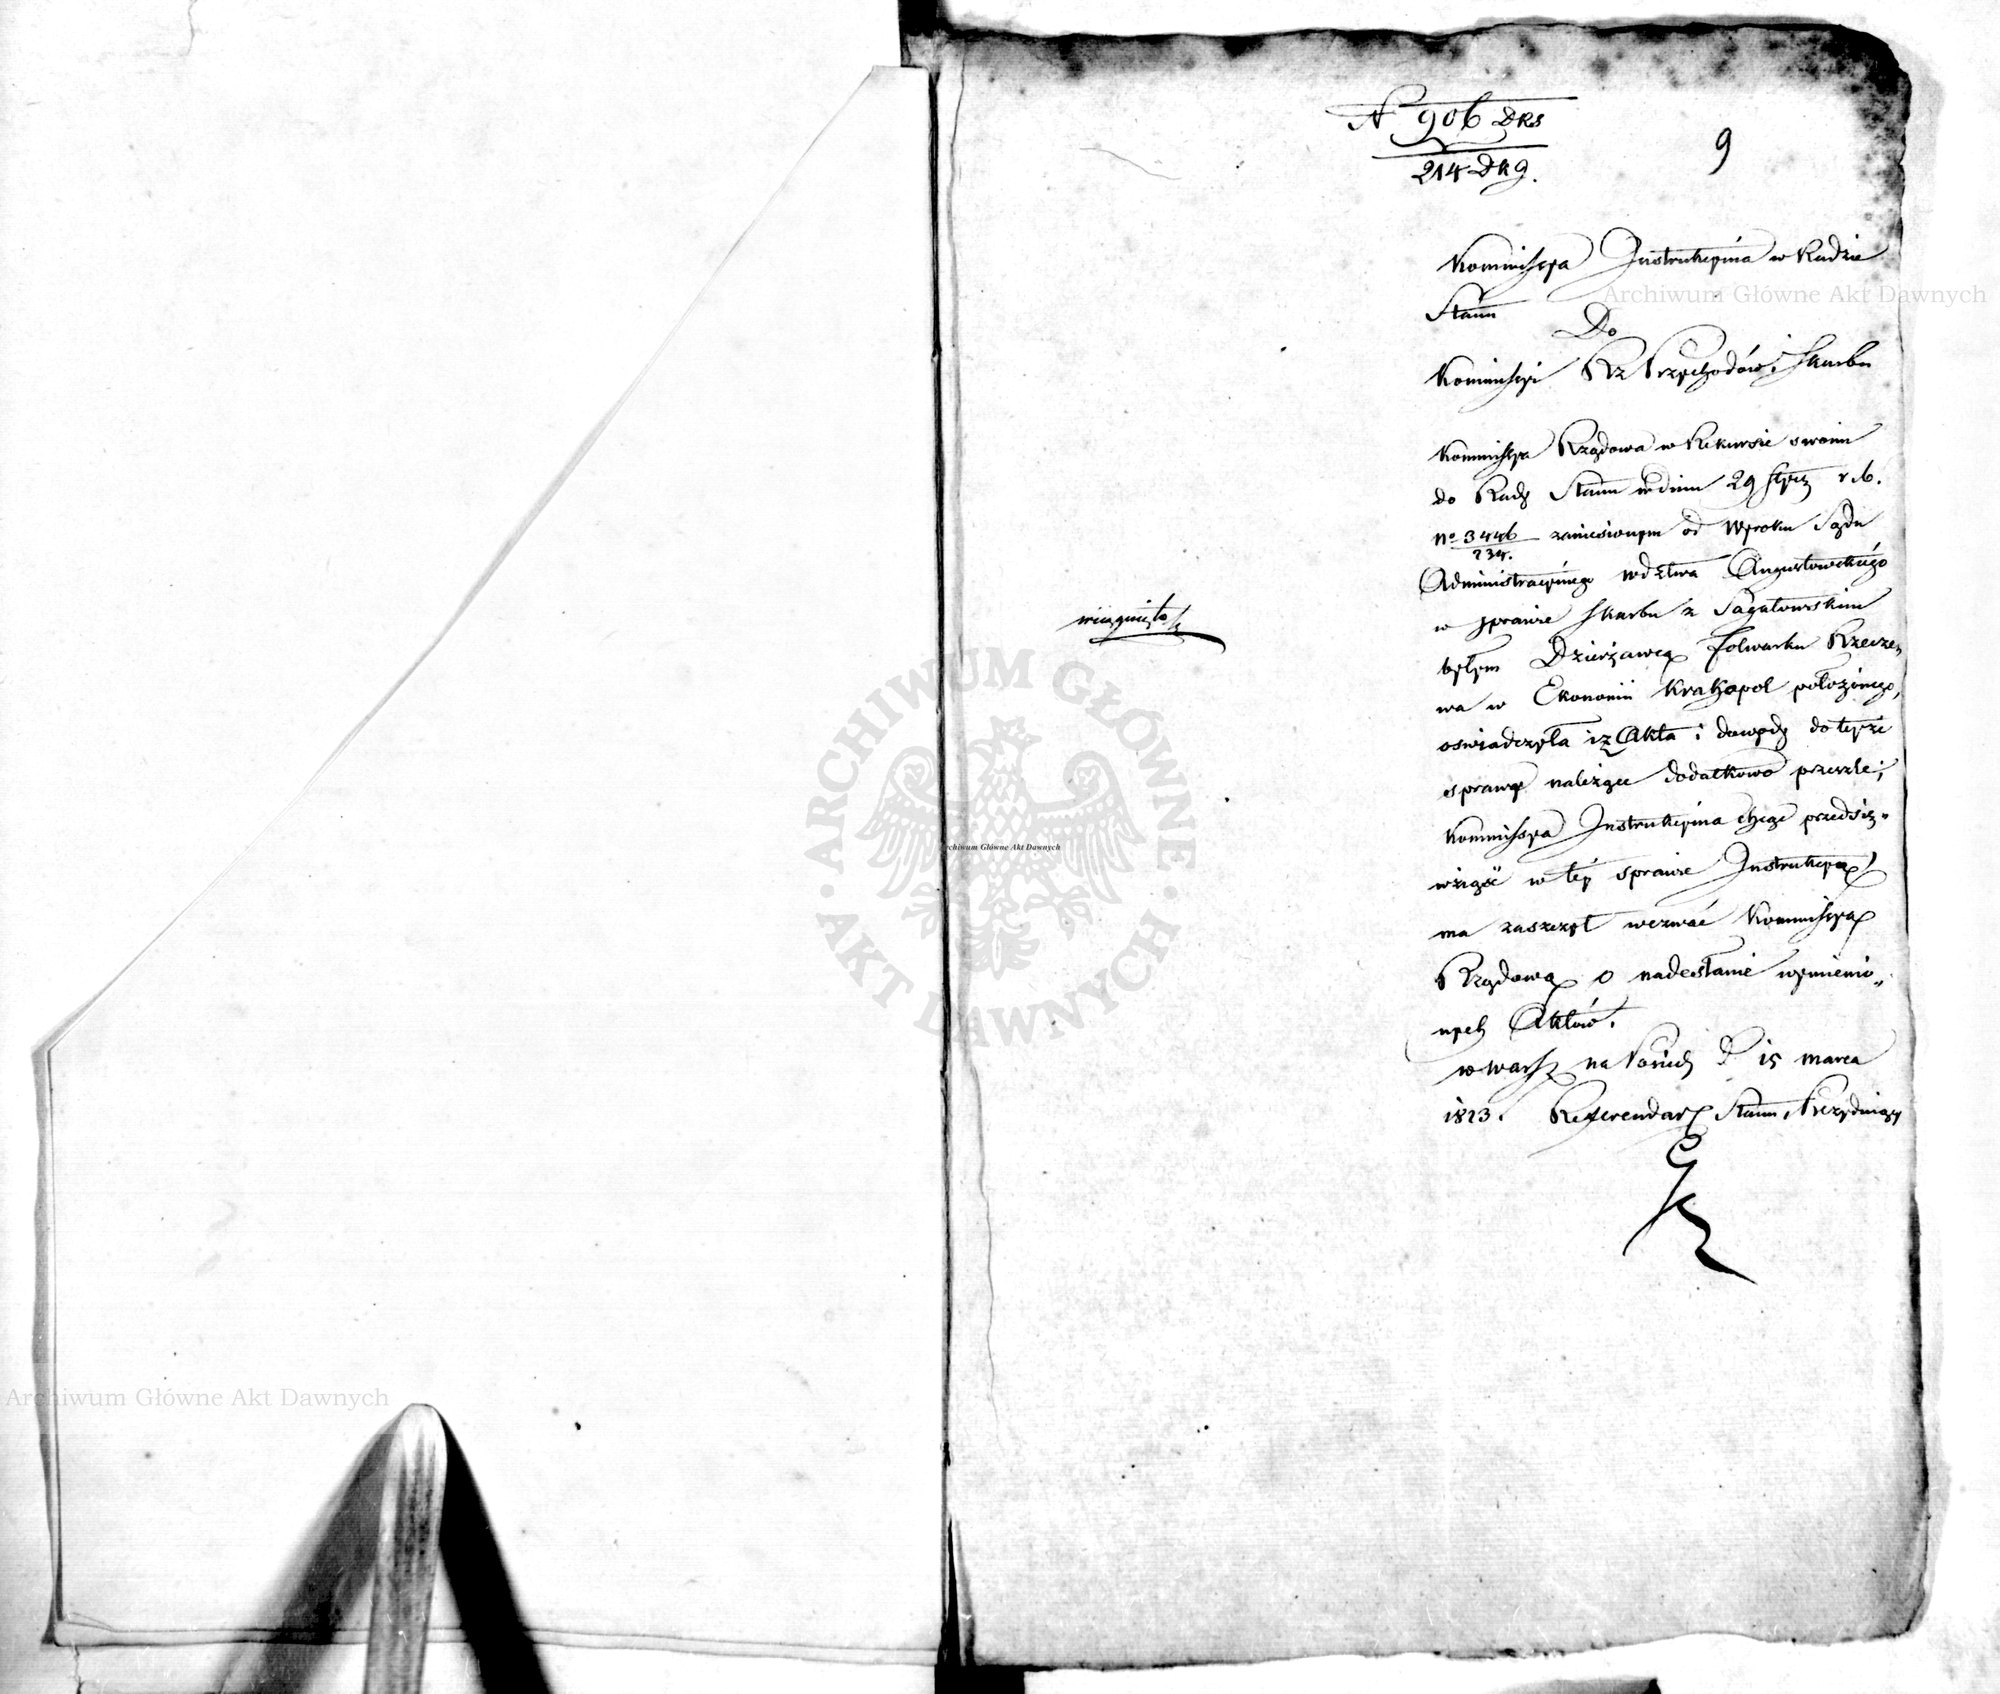 N 906 DRS
214 DK9.
9
Kommissya Instrukcyina w Radzie
Stanu
Do
Kommissyi Rz Przychodów i Skarbu
Kommissya Rządowa w Rekursie swoim
do Rady Stanu w dniu 29 Stycz r. b.
no 3446
234.
zaniesionym od Wyroku Sądu
Administracyinego wdztwa Augustowskiego
w sprawie Skarbu z Sagatowskim
byłym Dzierżawcą folwarku
wa w Ekonomii położonego,
oswiadczyła iz Akta i dowody do teyże
sprawy należące dodatkowo przeszle;
Kommissya Instrukcyina chcąc przedsię„
wziąść w tey sprawie Instrukcyą
ma zaszczyt wezwać Kommissyą
Rządową o nadesłanie wymienio„
nych Aktów.
w Warsz na Posiedz D 15 marca
1823. Referendarz Stanu, Prezyduiący
wciągnięto
ARCHIWUM GŁÓWNE AKT DAWNYCH
Archiwum Główne Akt Dawnych
Archiwum Główne Akt Dawnych
Archiwum Główne Akt Dawnych